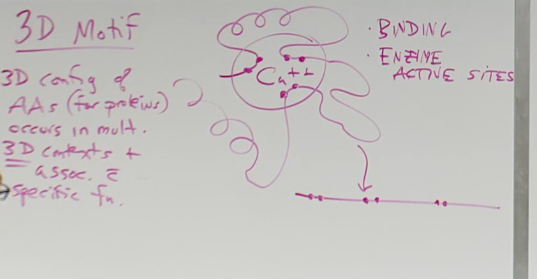 3D Motif
3D config of
AAs (for proteins)
occurs in mult.
3D contexts +
assoc. c̄
specific fn.
Ca++
· BINDING
· ENZYME
ACTIVE SITES